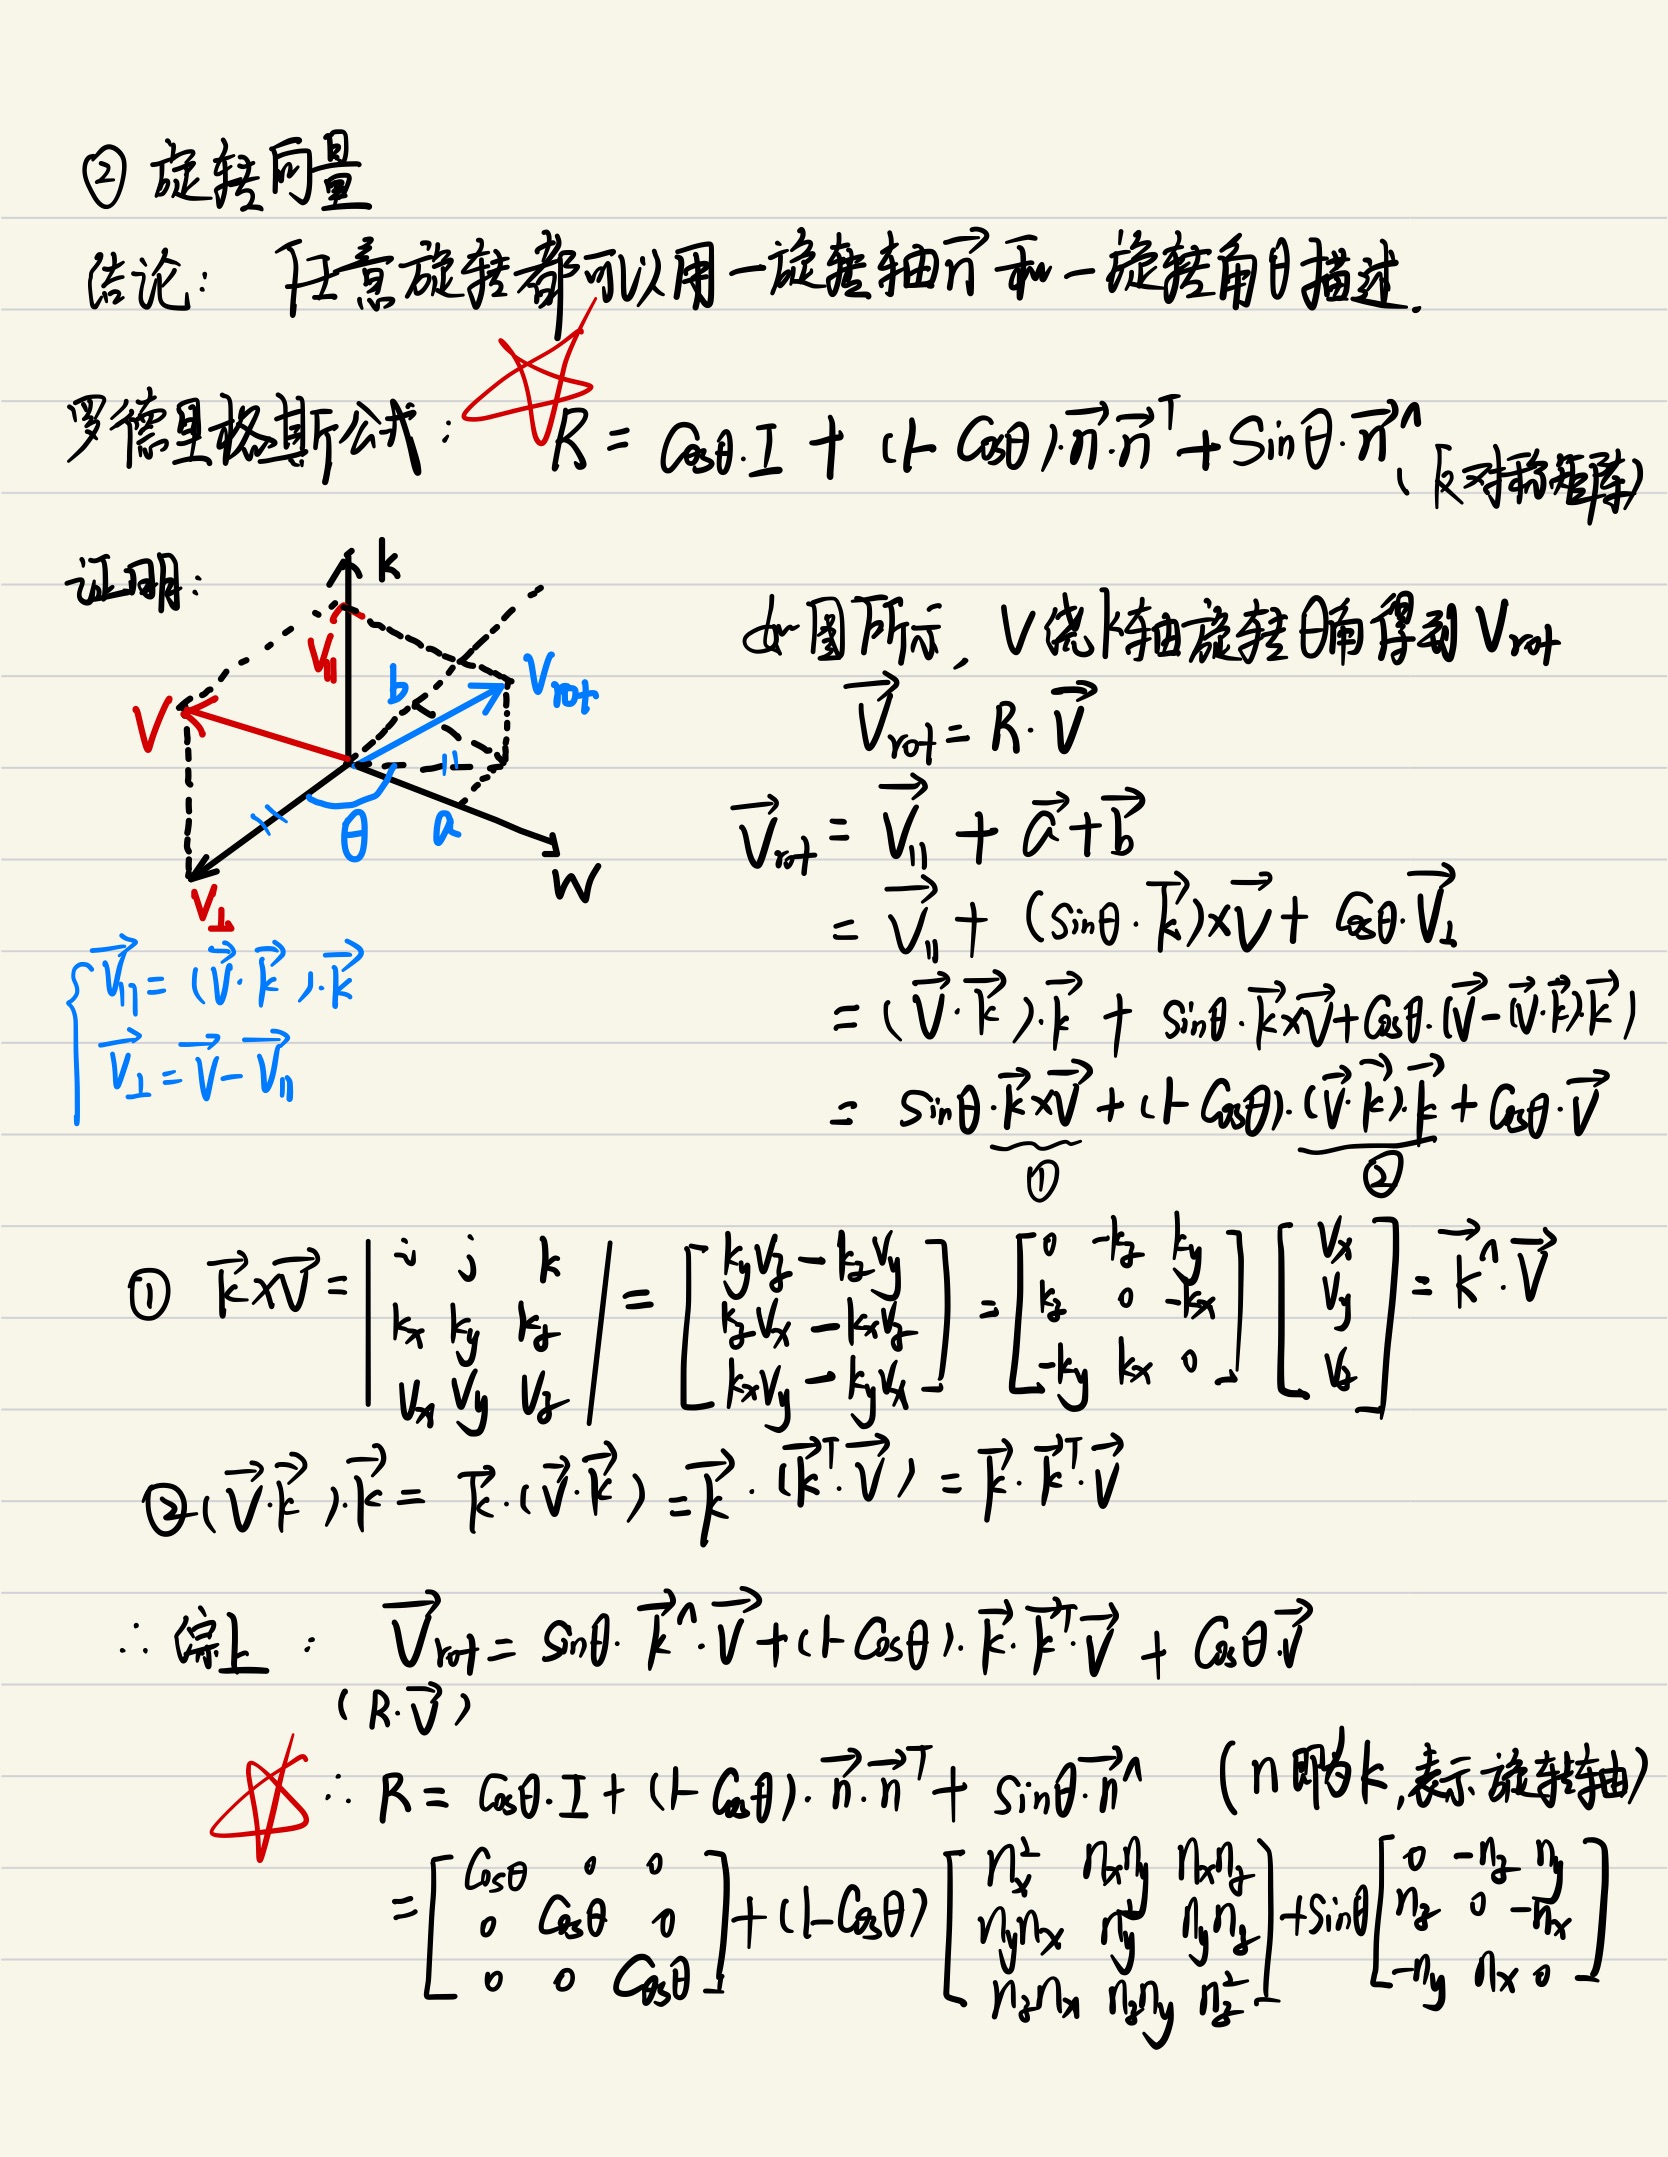 ② 旋转向量
结论: 任意旋转都可以用一旋转轴n⃗ 和一旋转角θ描述.
罗德里格斯公式: R = Cosθ·I + (1-Cosθ)·n⃗·n⃗ᵀ + Sinθ·n⃗^ (反对称矩阵)
证明:
k
V∥
b
Vrot
V
θ
a
W
V⊥
{ V⃗∥ = (V⃗·k⃗)·k⃗
V⃗⊥ = V⃗ - V⃗∥
如图所示, V绕k轴旋转θ角得到Vrot
V⃗rot = R·V⃗
V⃗rot = V⃗∥ + a⃗ + b⃗
= V⃗∥ + (sinθ·k⃗)×V⃗ + Cosθ·V⃗⊥
= (V⃗·k⃗)·k⃗ + sinθ·k⃗×V⃗ + Cosθ·(V⃗-(V⃗·k⃗)·k⃗)
= sinθ·k⃗×V⃗ + (1-Cosθ)·(V⃗·k⃗)·k⃗ + Cosθ·V⃗
① ②
① k⃗×V⃗ = | i j k | = [ kyVz - kzVy ] = [ 0 -kz ky ] [ Vx ] = k⃗^·V⃗
| kx ky kz | [ kzVx - kxVz ] [ kz 0 -kx ] [ Vy ]
| Vx Vy Vz | [ kxVy - kyVx ] [ -ky kx 0 ] [ Vz ]
② (V⃗·k⃗)·k⃗ = k⃗·(V⃗·k⃗) = k⃗·(k⃗ᵀ·V⃗) = k⃗·k⃗ᵀ·V⃗
∴ 综上: V⃗rot = sinθ·k⃗^·V⃗ + (1-Cosθ)·k⃗·k⃗ᵀ·V⃗ + Cosθ·V⃗
(R·V⃗)
∴ R = Cosθ·I + (1-Cosθ)·n⃗·n⃗ᵀ + sinθ·n⃗^ (n即为k,表示旋转轴)
= [ Cosθ 0 0 ] + (1-Cosθ) [ nx² nxny nxnz ] + sinθ [ 0 -nz ny ]
[ 0 Cosθ 0 ] [ nynx ny² nynz ] [ nz 0 -nx ]
[ 0 0 Cosθ ] [ nznx nzny nz² ] [ -ny nx 0 ]